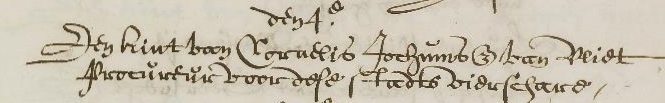 den 4e
Een kint van Cornelis Jochums van Vliet
Procureur voor dese stadts vierschare,